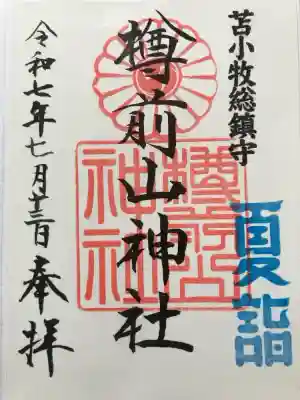 苫小牧総鎮守
夏詣
樽前山神社
樽前山
神社
令和七年七月十三日 奉拝